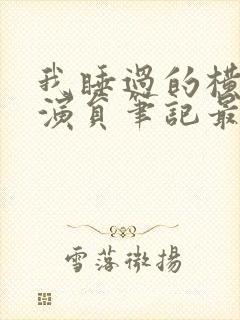 我睡過的橫
演員筆記最
雪落微揚